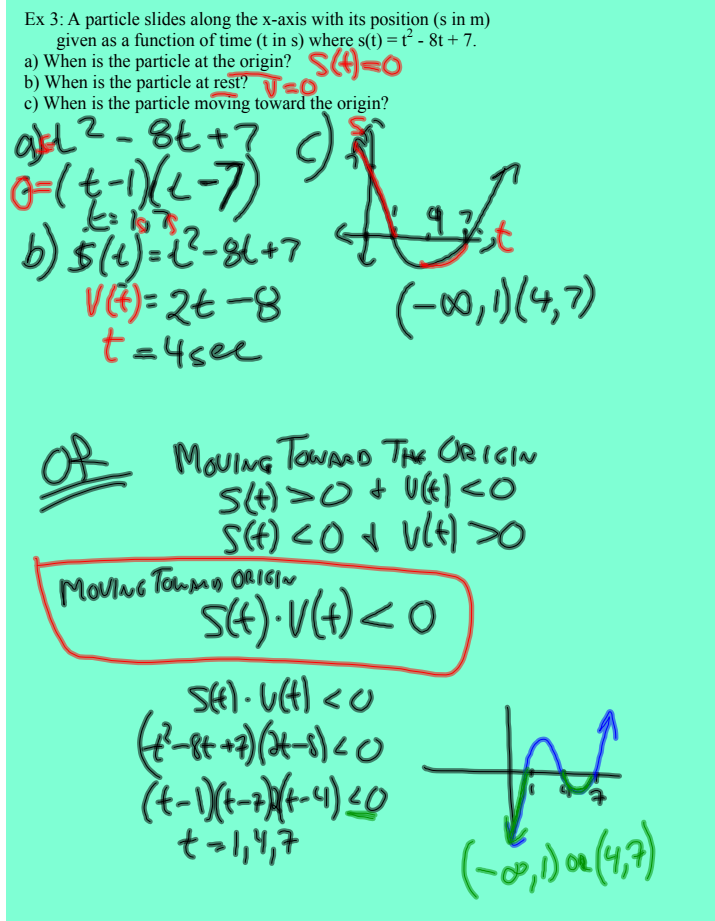 Ex 3: A particle slides along the x-axis with its position (s in m)
given as a function of time (t in s) where s(t) = t² - 8t + 7.
a) When is the particle at the origin? S(t)=0
b) When is the particle at rest? V=0
c) When is the particle moving toward the origin?
a) = t² - 8t + 7
0=(t-1)(t-7)
t= 1s, 7s
b) s(t)=t²-8t+7
V(t)= 2t -8
t = 4 sec
c) s
1 4 7 t
(-∞,1)(4,7)
OR
MOVING TOWARD THE ORIGIN
S(t) >0 + V(t) <0
S(t) <0 + V(t) >0
MOVING TOWARD ORIGIN
S(t)·V(t) < 0
S(t)·V(t) <0
(t²-8t+7)(2t-8) <0
(t-1)(t-7)(t-4) <0
t =1,4,7
1 4 7
(-∞,1) OR (4,7)